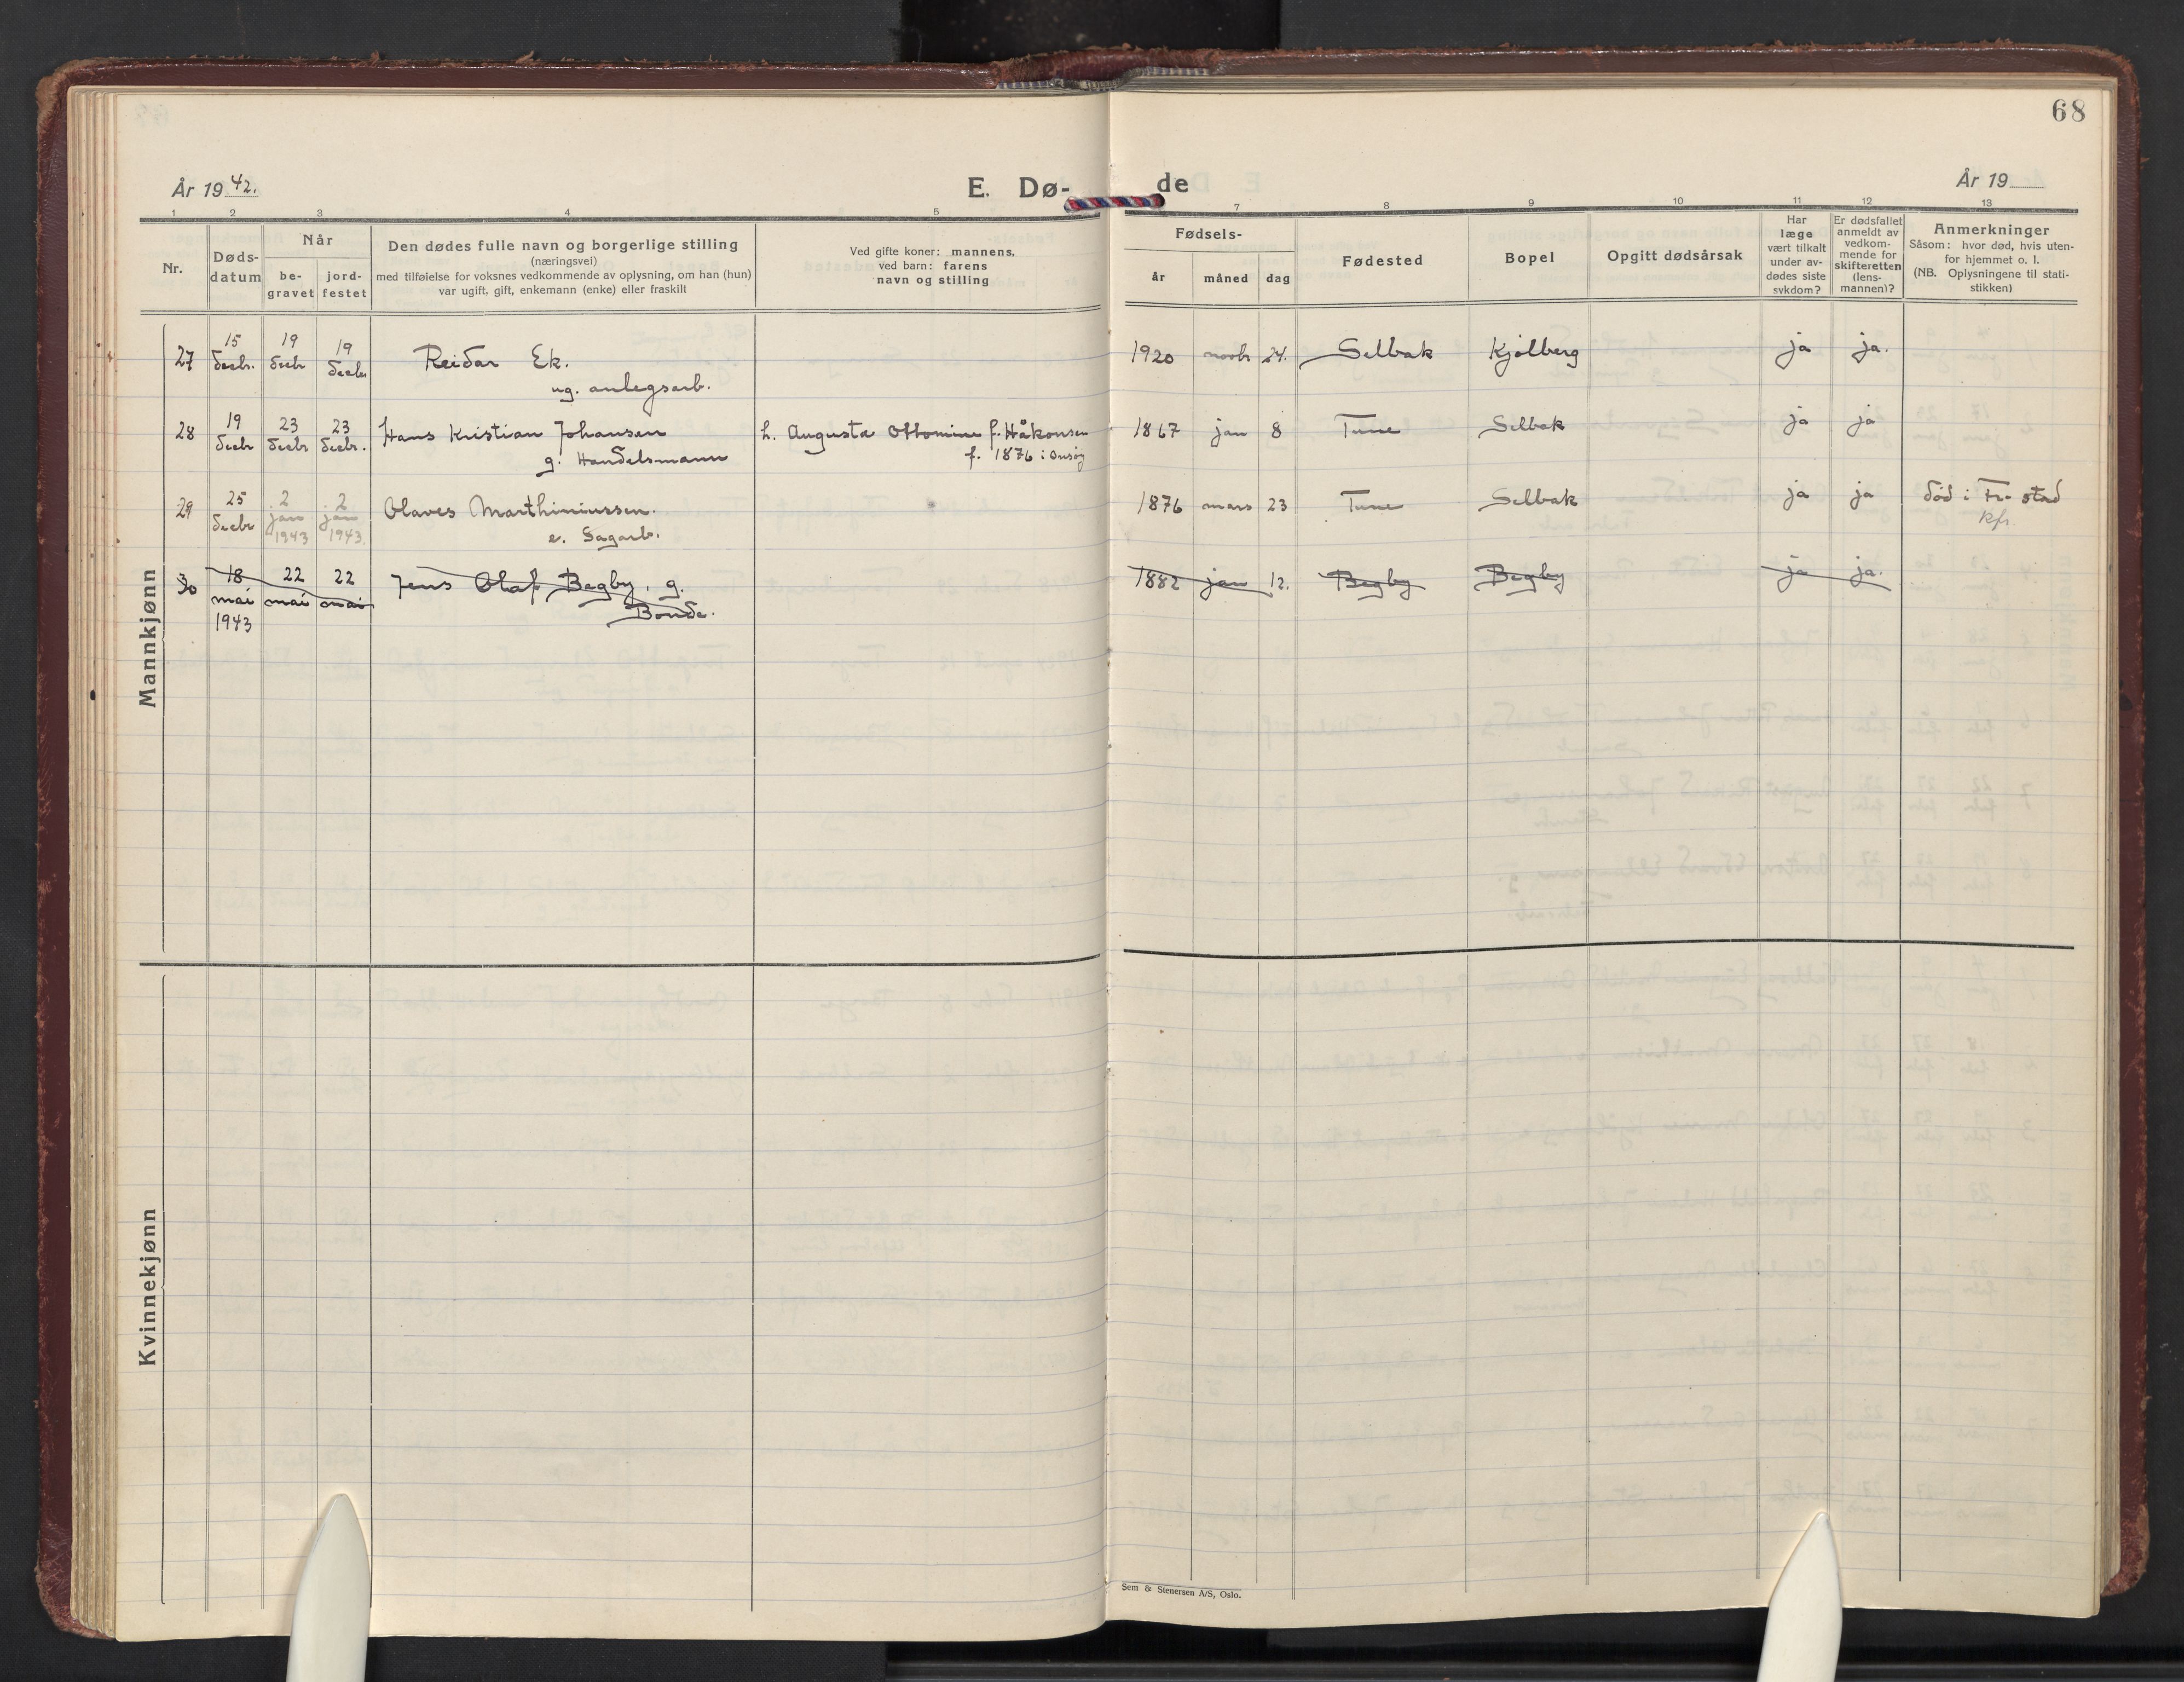 68
År 1942.
E. Dø-
de
År 19
1 2 3 4 5 7 8 9 10 11 12 13
Nr.
Døds-
datum
Når
be-
gravet
jord-
festet
Den dødes fulle navn og borgerlige stilling
(næringsvei)
med tilføielse for voksnes vedkommende av oplysning, om han (hun)
var ugift, gift, enkemann (enke) eller fraskilt
Ved gifte koner: mannens,
ved barn: farens
navn og stilling
Fødsels-
år måned dag
Fødested
Bopel
Opgitt dødsårsak
Har
læge
vært tilkalt
under av-
dødes siste
sykdom?
Er dødsfallet
anmeldt av
vedkom-
mende for
skifteretten
(lens-
mannen)?
Anmerkninger
Såsom: hvor død, hvis uten-
for hjemmet o. l.
(NB. Oplysningene til stati-
stikken)
Mannkjønn
27 15 decbr. 19 decbr 19 decbr Reidar Ek. 1920 novbr 24. Selbak Kjølberg ja ja.
ug. anlegsarb.
28 19 decbr 23 decbr 23 decbr. Hans Kristian Johansen h. Augusta Ottomine f. Håkonsen 1867 jan 8 Tune Selbak ja ja
g. Handelsmann f. 1876 i Onsøy
29 25 decbr 2 jan 1943 2 jan 1943. Olaves Marthiniussen. 1876 mars 23 Tune Selbak ja ja død i Fr.stad
e. Sagarb. kfr.
30 18 mai 1943 22 mai 22 mai Jens Olaf Begby, g. 1882 jan 12. Begby Begby ja ja.
Bonde.
Kvinnekjønn
Sem & Stenersen A/S, Oslo.